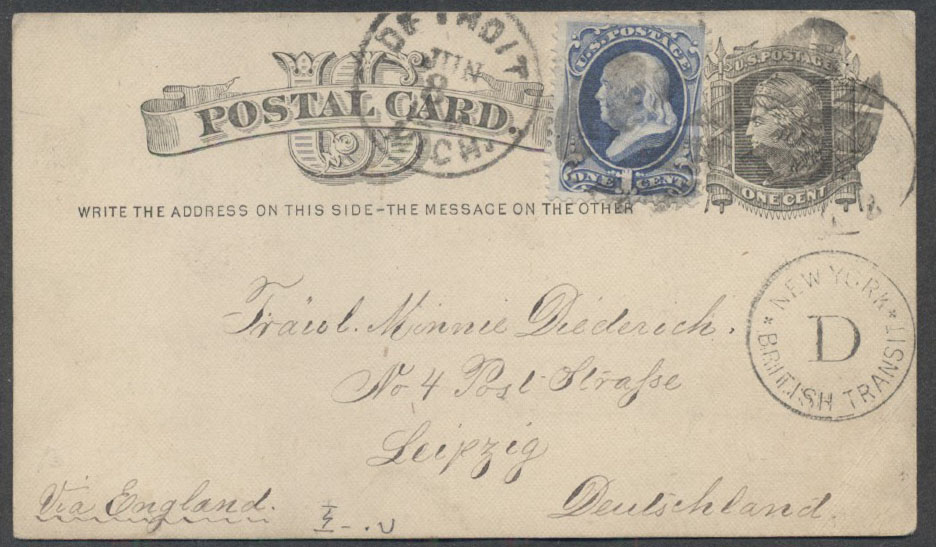 DETROIT
JUN
8
MICH.
U.S. POSTAGE
ONE CENT
U.S. POSTAGE
ONE CENT
US
POSTAL CARD.
WRITE THE ADDRESS ON THIS SIDE-THE MESSAGE ON THE OTHER
* NEW YORK *
D
BRITISH TRANSIT
Fräul. Minnie Diederich.
No 4 Post-Straſse
Leipzig
Deutschland.
Via England.